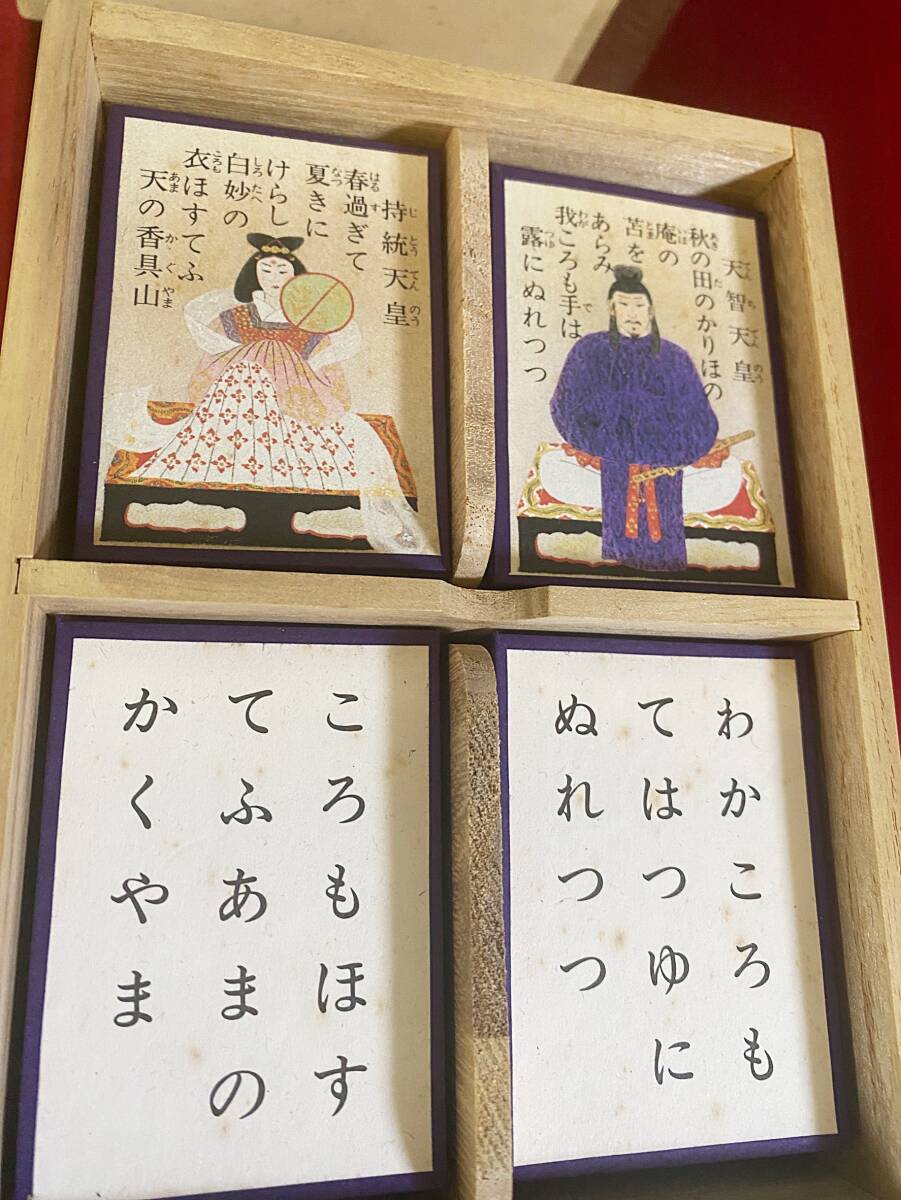 天智天皇
秋の田のかりほの
庵の
苫を
あらみ
我ころも手は
露にぬれつつ
持統天皇
春過ぎて
夏きに
けらし
白妙の
衣ほすてふ
天の香具山
わかころも
てはつゆに
ぬれつつ
ころもほす
てふあまの
かくやま